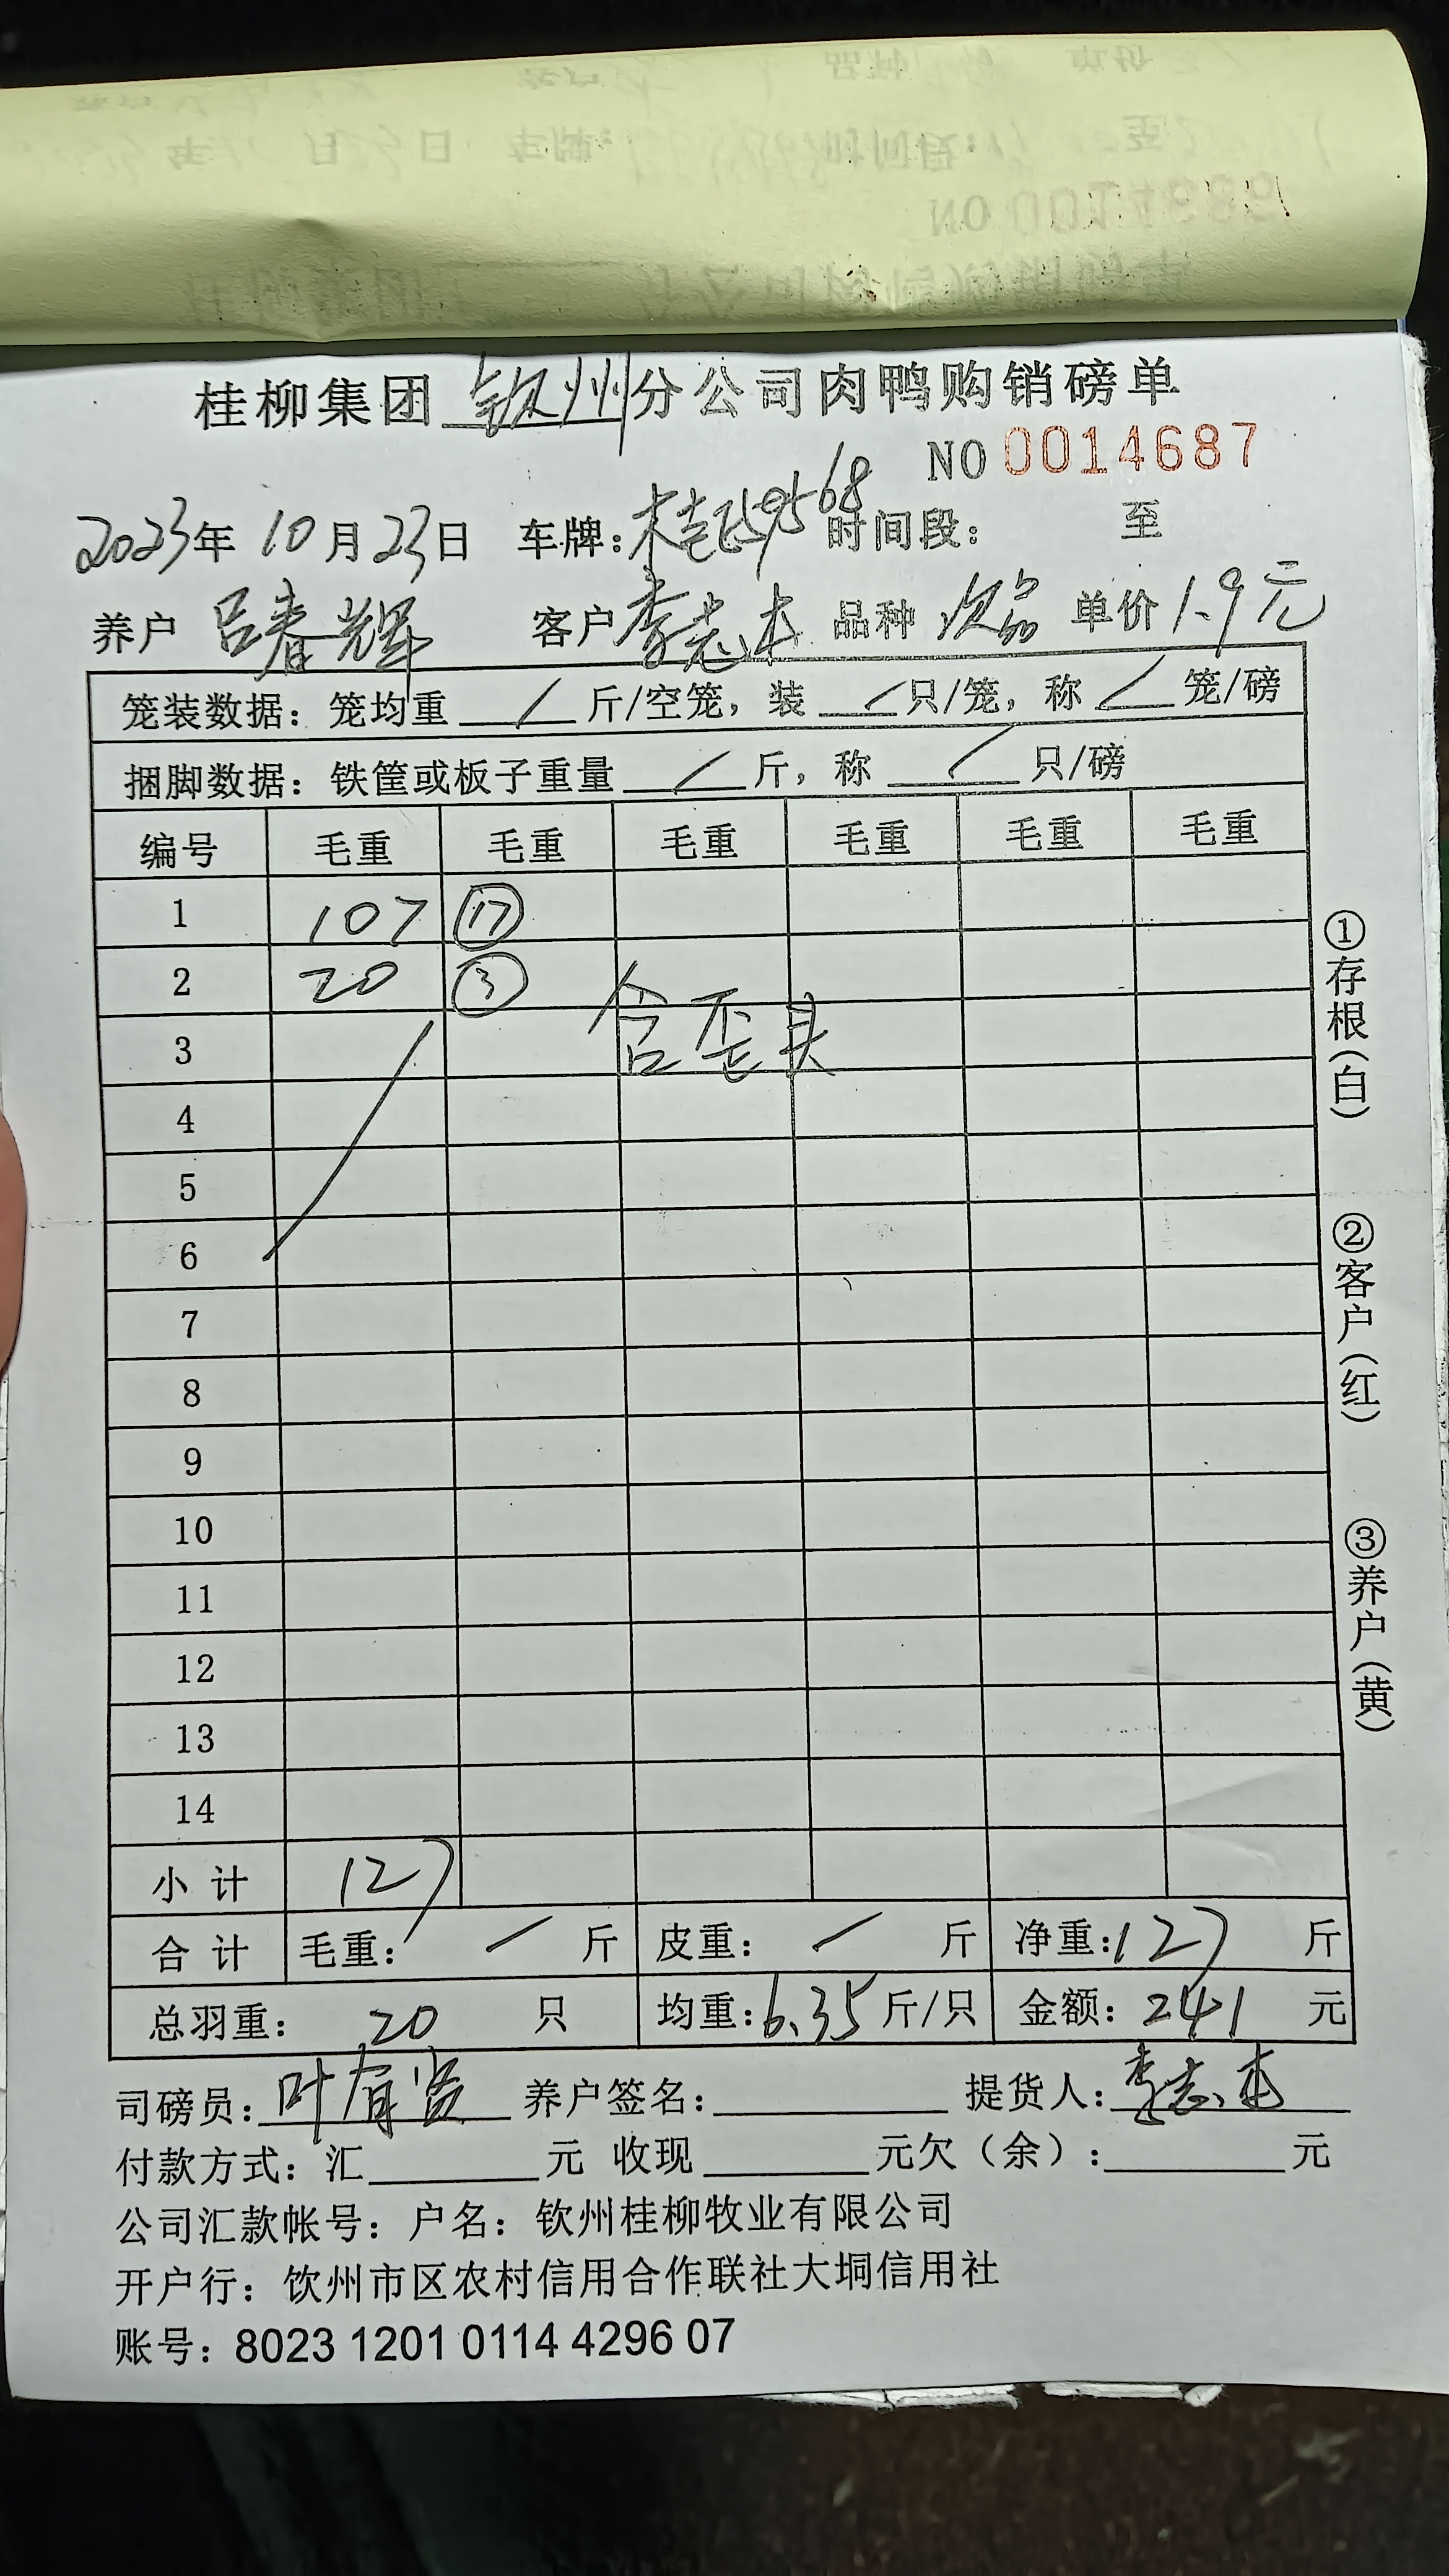 桂柳集团 钦州 分公司肉鸭购销磅单
NO 0014687
2023年 10月23日 车牌: 59568 时间段: 至
养户 吕春辉 客户 李志杰 品种 次品 单价 1.9元
笼装数据: 笼均重 / 斤/空笼, 装 / 只/笼, 称 / 笼/磅
捆脚数据: 铁筐或板子重量 / 斤, 称 / 只/磅
编号 毛重 毛重 毛重 毛重 毛重 毛重
1 107 ⑰
2 20 ③
含歪头
3
4
5
6
7
8
9
10
11
12
13
14
小 计 127
合 计 毛重: / 斤 皮重: / 斤 净重: 127 斤
总羽重: 20 只 均重: 6.35 斤/只 金额: 241 元
司磅员: 叶有 养户签名: 提货人: 李志杰
付款方式: 汇 元 收现 元欠(余): 元
公司汇款帐号: 户名: 钦州桂柳牧业有限公司
开户行: 钦州市区农村信用合作联社大垌信用社
账号: 8023 1201 0114 4296 07
①存根(白)
②客户(红)
③养户(黄)